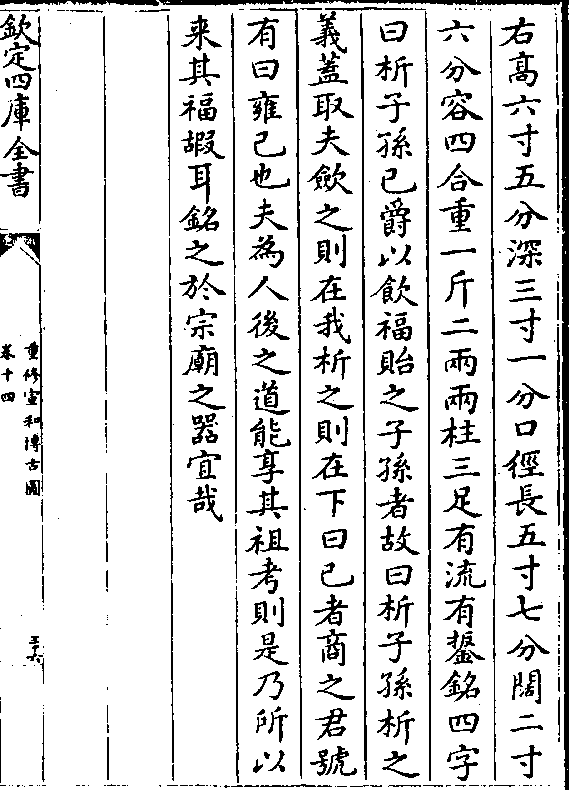 右髙六寸五分深三寸一分口徑長五寸七分闊二寸
六分容四合重一斤二兩兩柱三足有流有鋬銘四字
曰析子孫已爵以飲福貽之子孫者故曰析子孫析之
義蓋取夫歛之則在我析之則在下曰已者商之君號
有曰雍己也夫為人後之道能享其祖考則是乃所以
来其福嘏耳銘之於宗廟之器宜哉
欽定四庫全書
重修宣和博古圖
卷十四
三十六